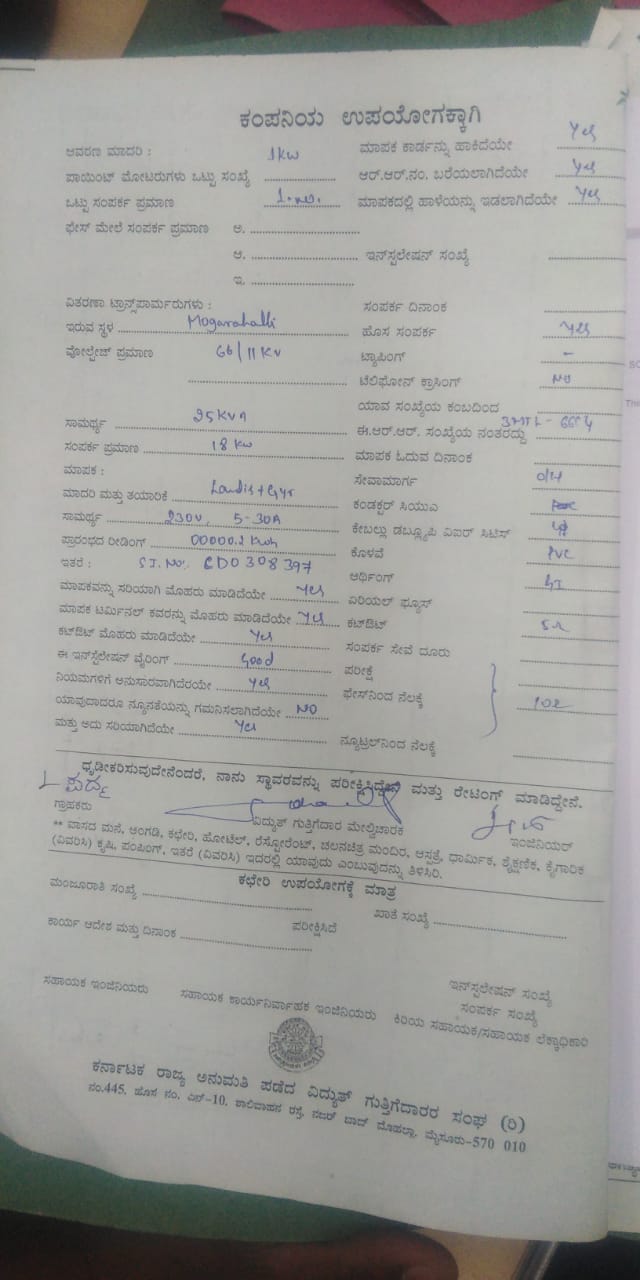 ಕಂಪನಿಯ ಉಪಯೋಗಕ್ಕಾಗಿ
ಆವರಣ ಮಾದರಿ : 1kw
ಪಾಯಿಂಟ್ ಮೋಟರುಗಳು ಒಟ್ಟು ಸಂಖ್ಯೆ
ಒಟ್ಟು ಸಂಪರ್ಕ ಪ್ರಮಾಣ 1.no.
ಫೇಸ್ ಮೇಲೆ ಸಂಪರ್ಕ ಪ್ರಮಾಣ ಅ.
ಆ.
ಇ.
ವಿತರಣಾ ಟ್ರಾನ್ಸ್‌ಪಾರ್ಮರುಗಳು :
ಇರುವ ಸ್ಥಳ Mogarahalli
ವೋಲ್ಟೇಜ್ ಪ್ರಮಾಣ 66/11 KV
ಸಾಮರ್ಥ್ಯ 25 KVA
ಸಂಪರ್ಕ ಪ್ರಮಾಣ 18 kw
ಮಾಪಕ :
ಮಾದರಿ ಮತ್ತು ತಯಾರಿಕೆ Landis + Gyr
ಸಾಮರ್ಥ್ಯ 230V, 5-30A
ಪ್ರಾರಂಭದ ರೀಡಿಂಗ್ 00000.2 kwh
ಇತರೆ : Sl. No: CD0308397
ಮಾಪಕವನ್ನು ಸರಿಯಾಗಿ ಮೊಹರು ಮಾಡಿದೆಯೇ Yes
ಮಾಪಕ ಟರ್ಮಿನಲ್ ಕವರನ್ನು ಮೊಹರು ಮಾಡಿದೆಯೇ Yes
ಕಟ್‌ಔಟ್ ಮೊಹರು ಮಾಡಿದೆಯೇ Yes
ಈ ಇನ್‌ಸ್ಟಲೇಷನ್ ವೈರಿಂಗ್ Good
ನಿಯಮಗಳಿಗೆ ಅನುಸಾರವಾಗಿದೆರಯೇ Yes
ಯಾವುದಾದರೂ ನ್ಯೂನತೆಯನ್ನು ಗಮನಿಸಲಾಗಿದೆಯೇ NO
ಮತ್ತು ಅದು ಸರಿಯಾಗಿದೆಯೇ Yes
ಮಾಪಕ ಕಾರ್ಡನ್ನು ಹಾಕಿದೆಯೇ Yes
ಆರ್.ಆರ್.ನಂ. ಬರೆಯಲಾಗಿದೆಯೇ Yes
ಮಾಪಕದಲ್ಲಿ ಹಾಳೆಯನ್ನು ಇಡಲಾಗಿದೆಯೇ Yes
ಇನ್‌ಸ್ಟಲೇಷನ್ ಸಂಖ್ಯೆ
ಸಂಪರ್ಕ ದಿನಾಂಕ
ಹೊಸ ಸಂಪರ್ಕ Yes
ಟ್ಯಾಪಿಂಗ್ -
ಟೆಲಿಫೋನ್ ಕ್ರಾಸಿಂಗ್ NO
ಯಾವ ಸಂಖ್ಯೆಯ ಕಂಬದಿಂದ
ಈ.ಆರ್.ಆರ್. ಸಂಖ್ಯೆಯ ನಂತರದ್ದು
ಮಾಪಕ ಓದುವ ದಿನಾಂಕ
ಸೇವಾಮಾರ್ಗ O/H
ಕಂಡಕ್ಟರ್ ಸಿಯುಎ
ಕೇಬಲ್ಲು ಡಬ್ಲ್ಯೂಪಿ ವಿಐರ್ ಸಿಟಿಸ್
ಕೊಳವೆ PVC
ಆರ್ಥಿಂಗ್ GI
ಏರಿಯಲ್ ಫ್ಯೂಸ್
ಕಟ್‌ಔಟ್
ಸಂಪರ್ಕ ಸೇವೆ ದೂರು
ಪರೀಕ್ಷೆ
ಫೇಸ್‌ನಿಂದ ನೆಲಕ್ಕೆ
ನ್ಯೂಟ್ರಲ್‌ನಿಂದ ನೆಲಕ್ಕೆ
ಧೃಡೀಕರಿಸುವುದೇನೆಂದರೆ, ನಾನು ಸ್ಥಾವರವನ್ನು ಪರೀಕ್ಷಿಸಿದ್ದೇನೆ ಮತ್ತು ರೇಟಿಂಗ್ ಮಾಡಿದ್ದೇನೆ.
ಗ್ರಾಹಕರು ವಿದ್ಯುತ್ ಗುತ್ತಿಗೆದಾರ ಮೇಲ್ವಿಚಾರಕ ಇಂಜಿನಿಯರ್
** ವಾಸದ ಮನೆ, ಅಂಗಡಿ, ಕಛೇರಿ, ಹೋಟೆಲ್, ರೆಸ್ಟೋರೆಂಟ್, ಚಲನಚಿತ್ರ ಮಂದಿರ, ಆಸ್ಪತ್ರೆ, ಧಾರ್ಮಿಕ, ಶೈಕ್ಷಣಿಕ, ಕೈಗಾರಿಕ
(ವಿವರಿಸಿ) ಕೃಷಿ, ಪಂಪಿಂಗ್, ಇತರೆ (ವಿವರಿಸಿ) ಇದರಲ್ಲಿ ಯಾವುದು ಎಂಬುವುದನ್ನು ತಿಳಿಸಿರಿ.
ಕಛೇರಿ ಉಪಯೋಗಕ್ಕೆ ಮಾತ್ರ
ಮಂಜೂರಾತಿ ಸಂಖ್ಯೆ ಖಾತೆ ಸಂಖ್ಯೆ
ಕಾರ್ಯ ಆದೇಶ ಮತ್ತು ದಿನಾಂಕ ಪರೀಕ್ಷಿಸಿದೆ
ಇನ್‌ಸ್ಟಲೇಷನ್ ಸಂಖ್ಯೆ
ಸಂಪರ್ಕ ಸಂಖ್ಯೆ
ಸಹಾಯಕ ಇಂಜಿನಿಯರು ಸಹಾಯಕ ಕಾರ್ಯನಿರ್ವಾಹಕ ಇಂಜಿನಿಯರು ಕಿರಿಯ ಸಹಾಯಕ/ಸಹಾಯಕ ಲೆಕ್ಕಾಧಿಕಾರಿ
ಕರ್ನಾಟಕ ರಾಜ್ಯ ಅನುಮತಿ ಪಡೆದ ವಿದ್ಯುತ್ ಗುತ್ತಿಗೆದಾರರ ಸಂಘ (ರಿ)
ನಂ.445, ಹೊಸ ನಂ. ಎನ್-10, ಶಾಲಿವಾಹನ ರಸ್ತೆ, ನಜರ್ ಬಾದ್ ಮೊಹಲ್ಲಾ, ಮೈಸೂರು-570 010